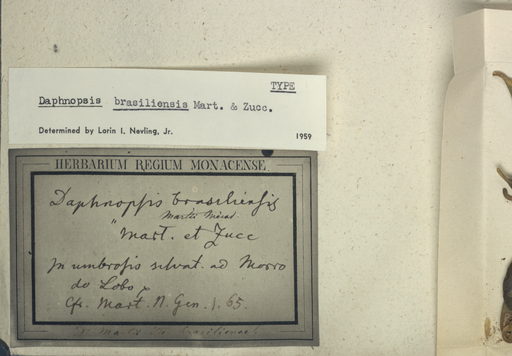 TYPE
Daphnopsis brasiliensis Mart. & Zucc.
Determined by Lorin I. Nevling, Jr. 1959
HERBARIUM REGIUM MONACENSE.
Daphnopsis brasiliensis
Mart. et Zucc
In umbrosis silvat. ad Morro
do Lobo
Cfr. Mart. N. Gen. 1. 65.